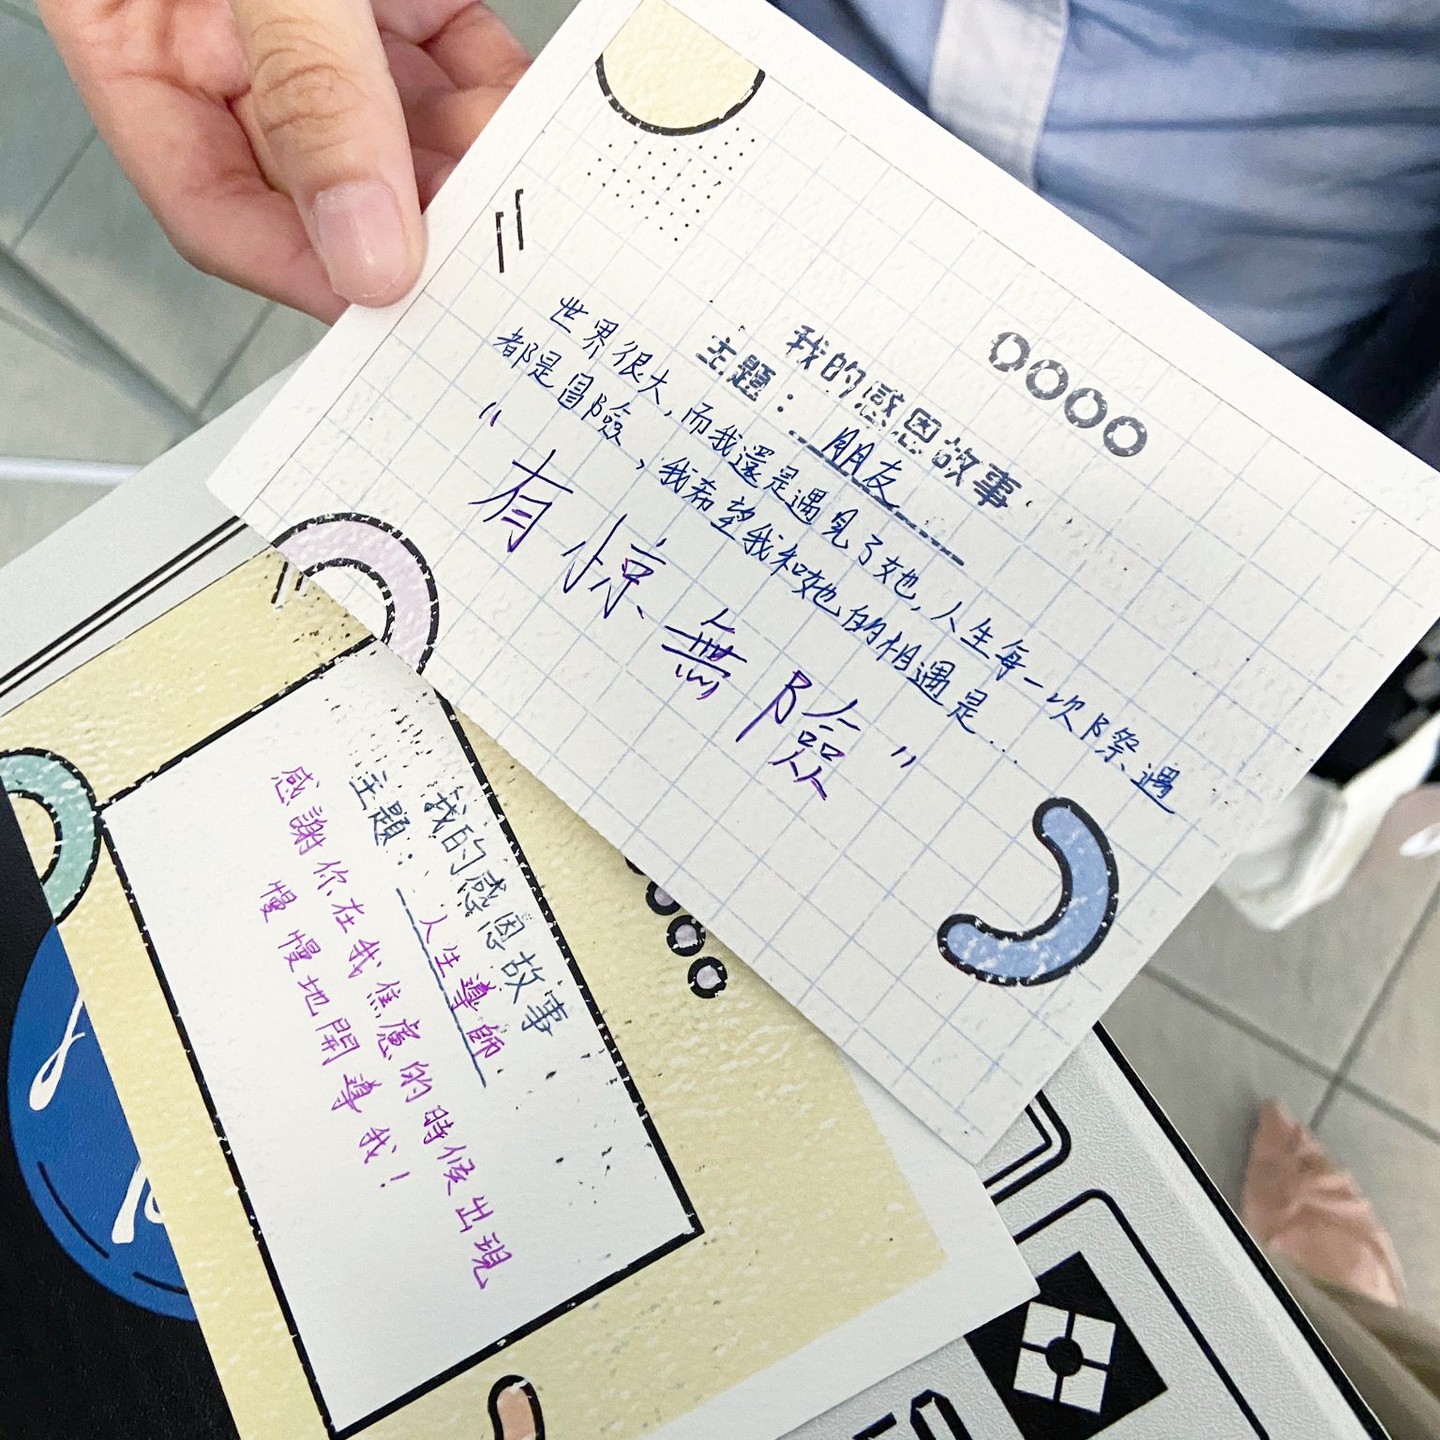 我的感恩故事
主題：朋友
世界很大，而我還是遇見了她，人生每一次際遇
都是冒險，我希望我和她的相遇是...
“有惊無險”
我的感恩故事
主題：人生導師.
感謝你在我焦慮的時候出現
慢慢地開導我！